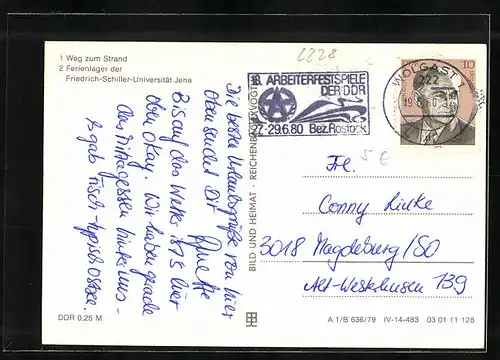 1 Weg zum Strand
2 Ferienlager der
Friedrich-Schiller-Universität Jena
2228
Die besten Urlaubsgrüße von hier
übersendet Dir Annette
Bis auf das Wetter ist's hier
oben okay. Wir haben gerade
das Mittagessen hinter uns -
es gab Fisch - typisch Ostsee.
DDR 0,25 M
BILD UND HEIMAT · REICHENBACH (VOGTL)
18. ARBEITERFESTSPIELE
DER DDR
27.-29.6.80 Bez. Rostock
WOLGAST 1
222
10
5 €
Frl.
Conny
3018 Magdeburg/SO
Alt-Westerhüsen 139
A 1/B 636/79 IV-14-483 03 01 11 128